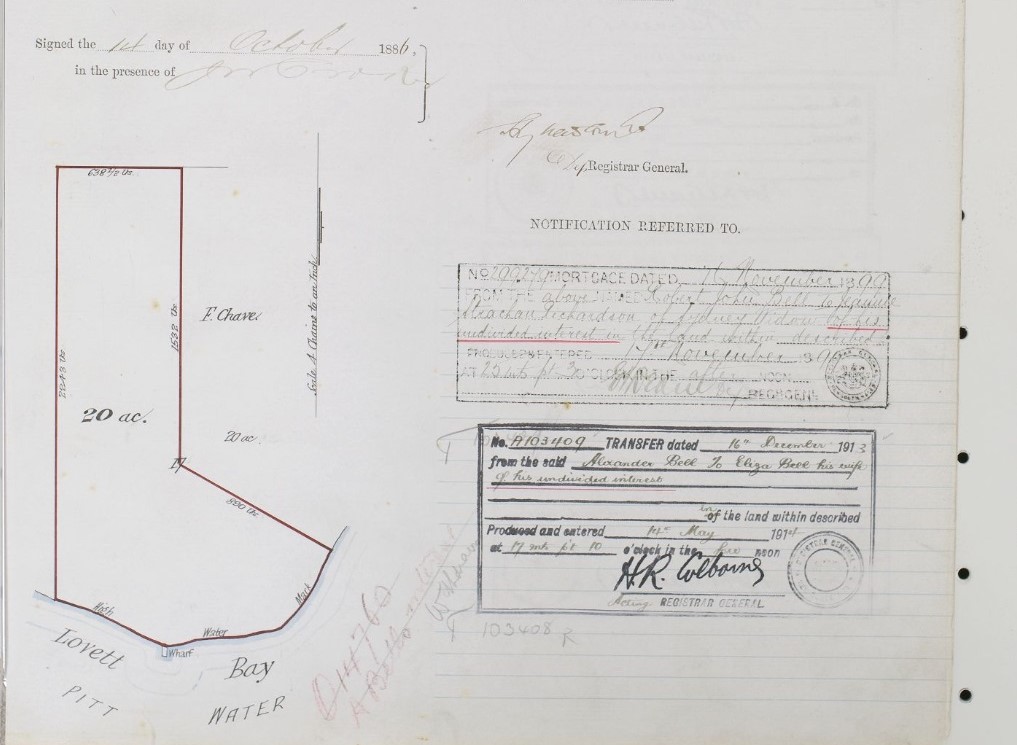 Signed the 14 day of October 1886.
in the presence of
Dep Registrar General.
NOTIFICATION REFERRED TO.
638 4/10 lks
1532 lks
2243 lks
F. Chave
Scale 4 Chains to an Inch
20 ac.
20 ac.
800 lks
High
Water
Mark
Wharf
Lovett
Bay
PITT
WATER
No MORTGAGE DATED November 1890
FROM THE above NAMED Robert John Bell to
Strachan Richardson of Sydney Widow of his
undivided interest in the land within described
PRODUCED & ENTERED November 1890
AT 25 mts pt 3 O'CLOCK IN THE after NOON
REG GENL
No. A103409 TRANSFER dated 16th December 1913
from the said Alexander Bell To Eliza Bell his wife
of his undivided interest
in of the land within described
Produced and entered 14th May 1914
at 17 mts pt 10 o'clock in the fore noon
H.R. Colborne
Acting REGISTRAR GENERAL
103408 R